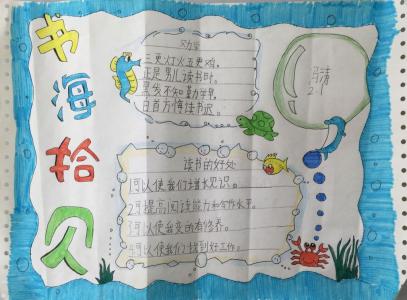 书海拾贝
劝学
三更灯火五更鸡,
正是男儿读书时。
黑发不知勤学早,
白首方悔读书迟。
2.1
读书的好处
1可以使我们增长见识。
2可提高阅读能力和写作水平。
3可以使我变的有修养。
4可以使我们找到好工作。